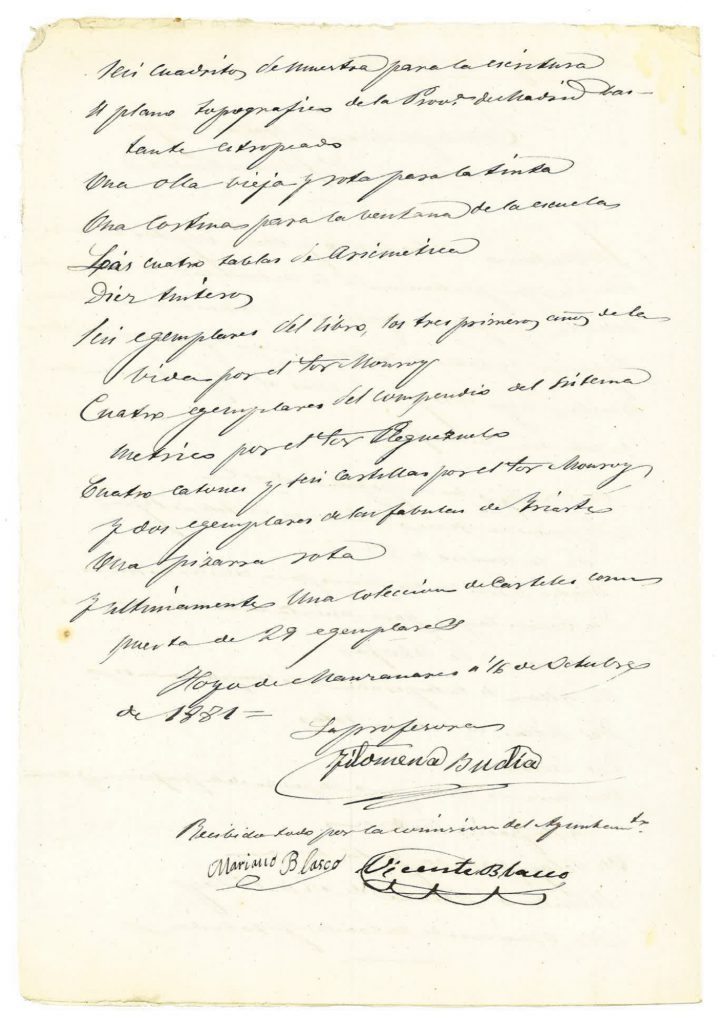 Seis cuadritos de muestra para la escritura
Un plano topografico de la Prov.ª de Madrid bas-
tante estropeado
Una olla vieja y rota para la tinta
Una cortina para la ventana de la escuela
Las cuatro tablas de Arismetica
Diez tinteros
Seis egemplares del libro, los tres primeros años de la
vida por el Sor Monroy
Cuatro egemplares del compendio del sistema
metrico por el Sor Reguezuelo
Cuatro catones y seis cartillas por el Sor Monroy
y dos egemplares de las fabulas de Yriarte
Una pizarra rota
Y ultimamente Una coleccion de Carteles com
puesta de 29 egemplares
Hoyo de Manzanares á 16 de Octubre
de 1881=
La profesora
Filomena Budia
Recibido todo por la comision del Ayuntam.to
Mariano Blasco Vicente Blasco